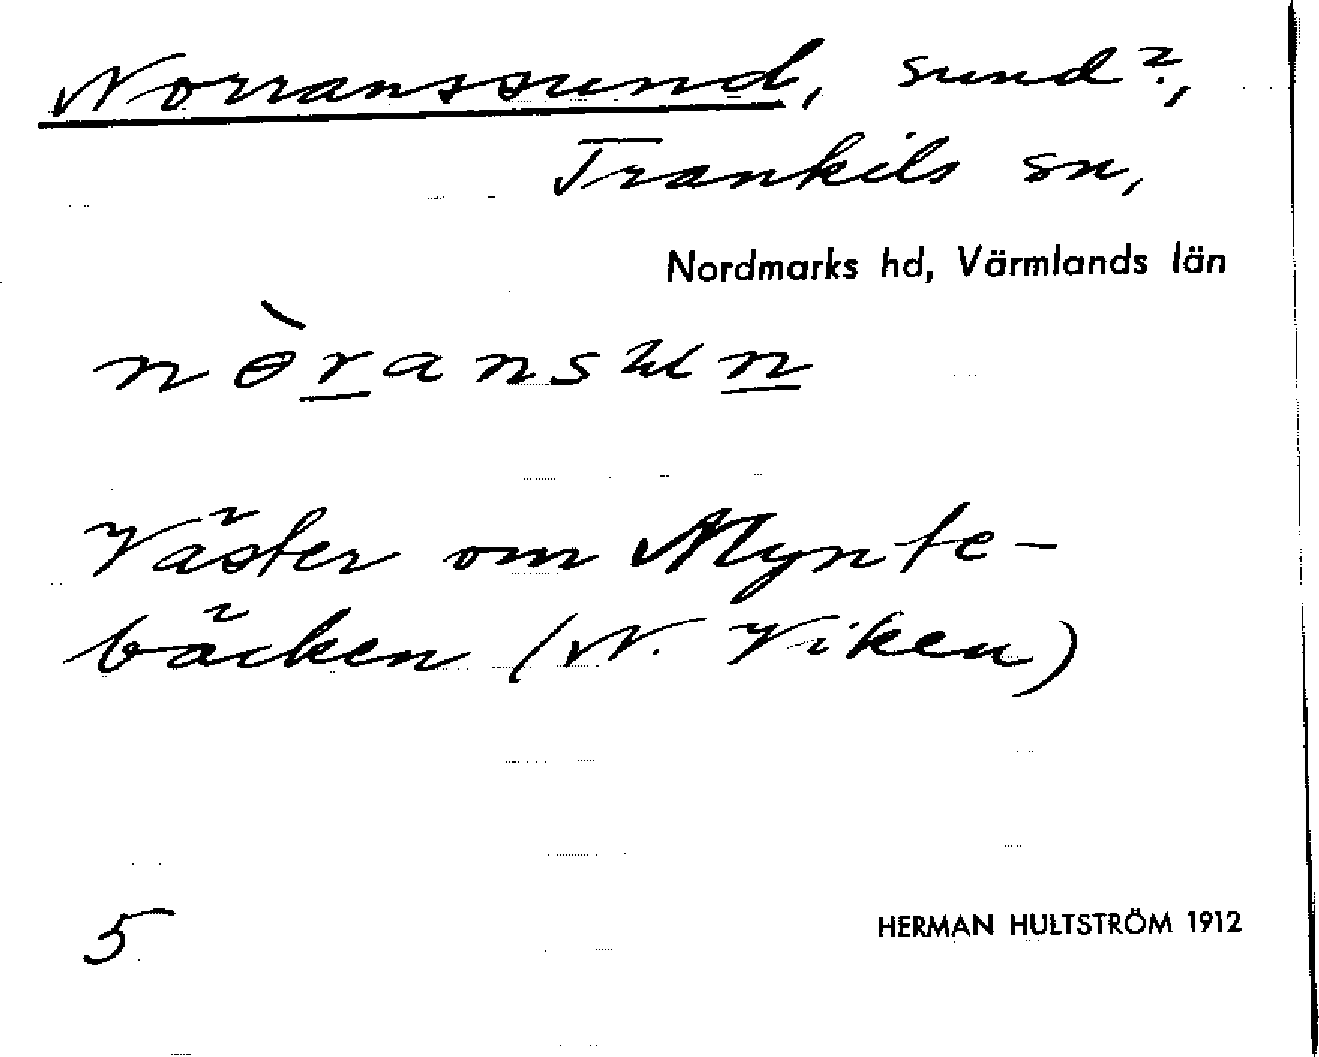 Norranssund, sund?,
Trankils sn,
Nordmarks hd, Värmlands län
nɵ̀ransun
Väster om Mynte-
bäcken (N. Viken)
5
HERMAN HULTSTRÖM 1912